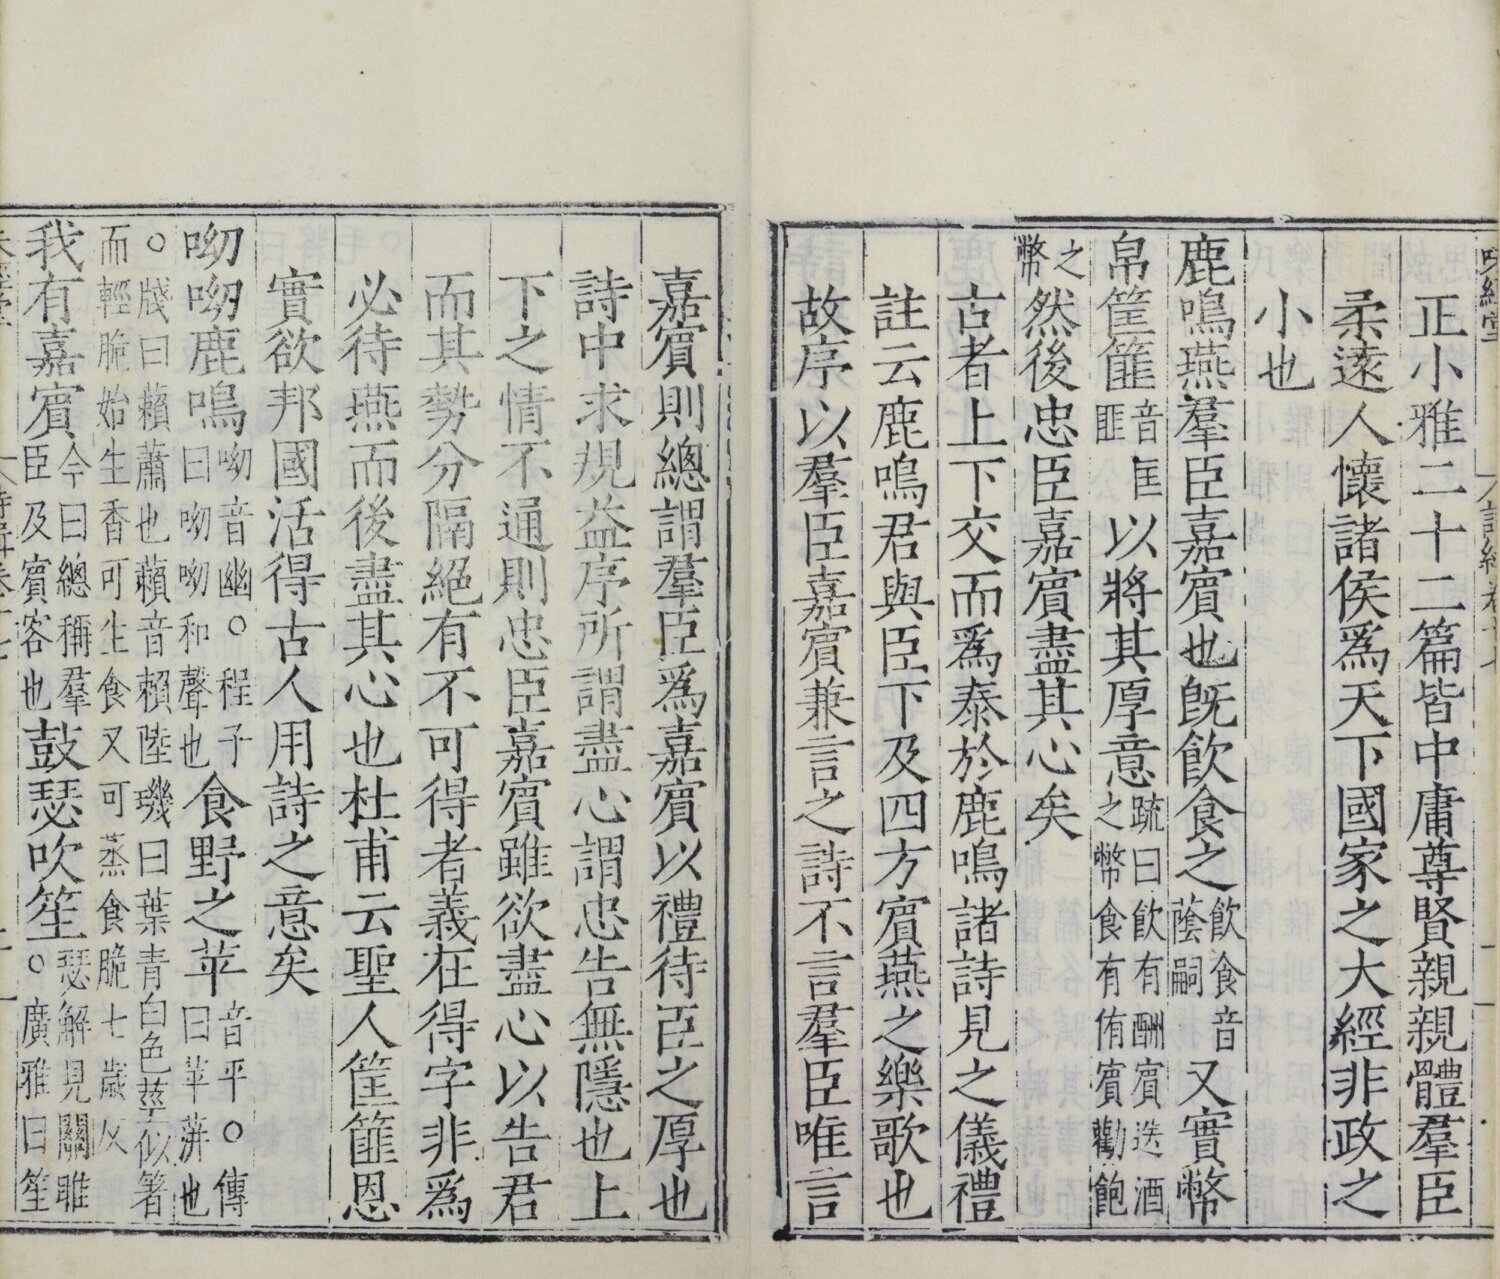 正小雅二十二篇皆中庸尊賢親親體羣臣
柔遠人懷諸侯爲天下國家之大經非政之
小也
鹿鳴燕羣臣嘉賓也旣飲食之飲食音蔭嗣又實幣
帛筐篚音匡匪以將其厚意疏曰飲有酬賓送酒之幣食有侑賓勸飽
之幣然後忠臣嘉賓盡其心矣
古者上下交而爲泰於鹿鳴諸詩見之儀禮
註云鹿鳴君與臣下及四方賓燕之樂歌也
故序以羣臣嘉賓兼言之詩不言羣臣唯言
嘉賓則總謂羣臣爲嘉賓以禮待臣之厚也
詩中求規益序所謂盡心謂忠告無隱也上
下之情不通則忠臣嘉賓雖欲盡心以告君
而其勢分隔絕有不可得者義在得字非爲
必待燕而後盡其心也杜甫云聖人筐篚恩
實欲邦國活得古人用詩之意矣
呦呦鹿鳴呦音幽○程子曰呦呦和聲也食野之苹音平○傳曰苹蓱也
○牋曰藾蕭也藾音賴陸璣曰葉青白色莖似箸
而輕脆始生香可生食又可蒸食脆七歲反
我有嘉賓今曰總稱羣臣及賓客也鼓瑟吹笙瑟解見關雎○廣雅曰笙